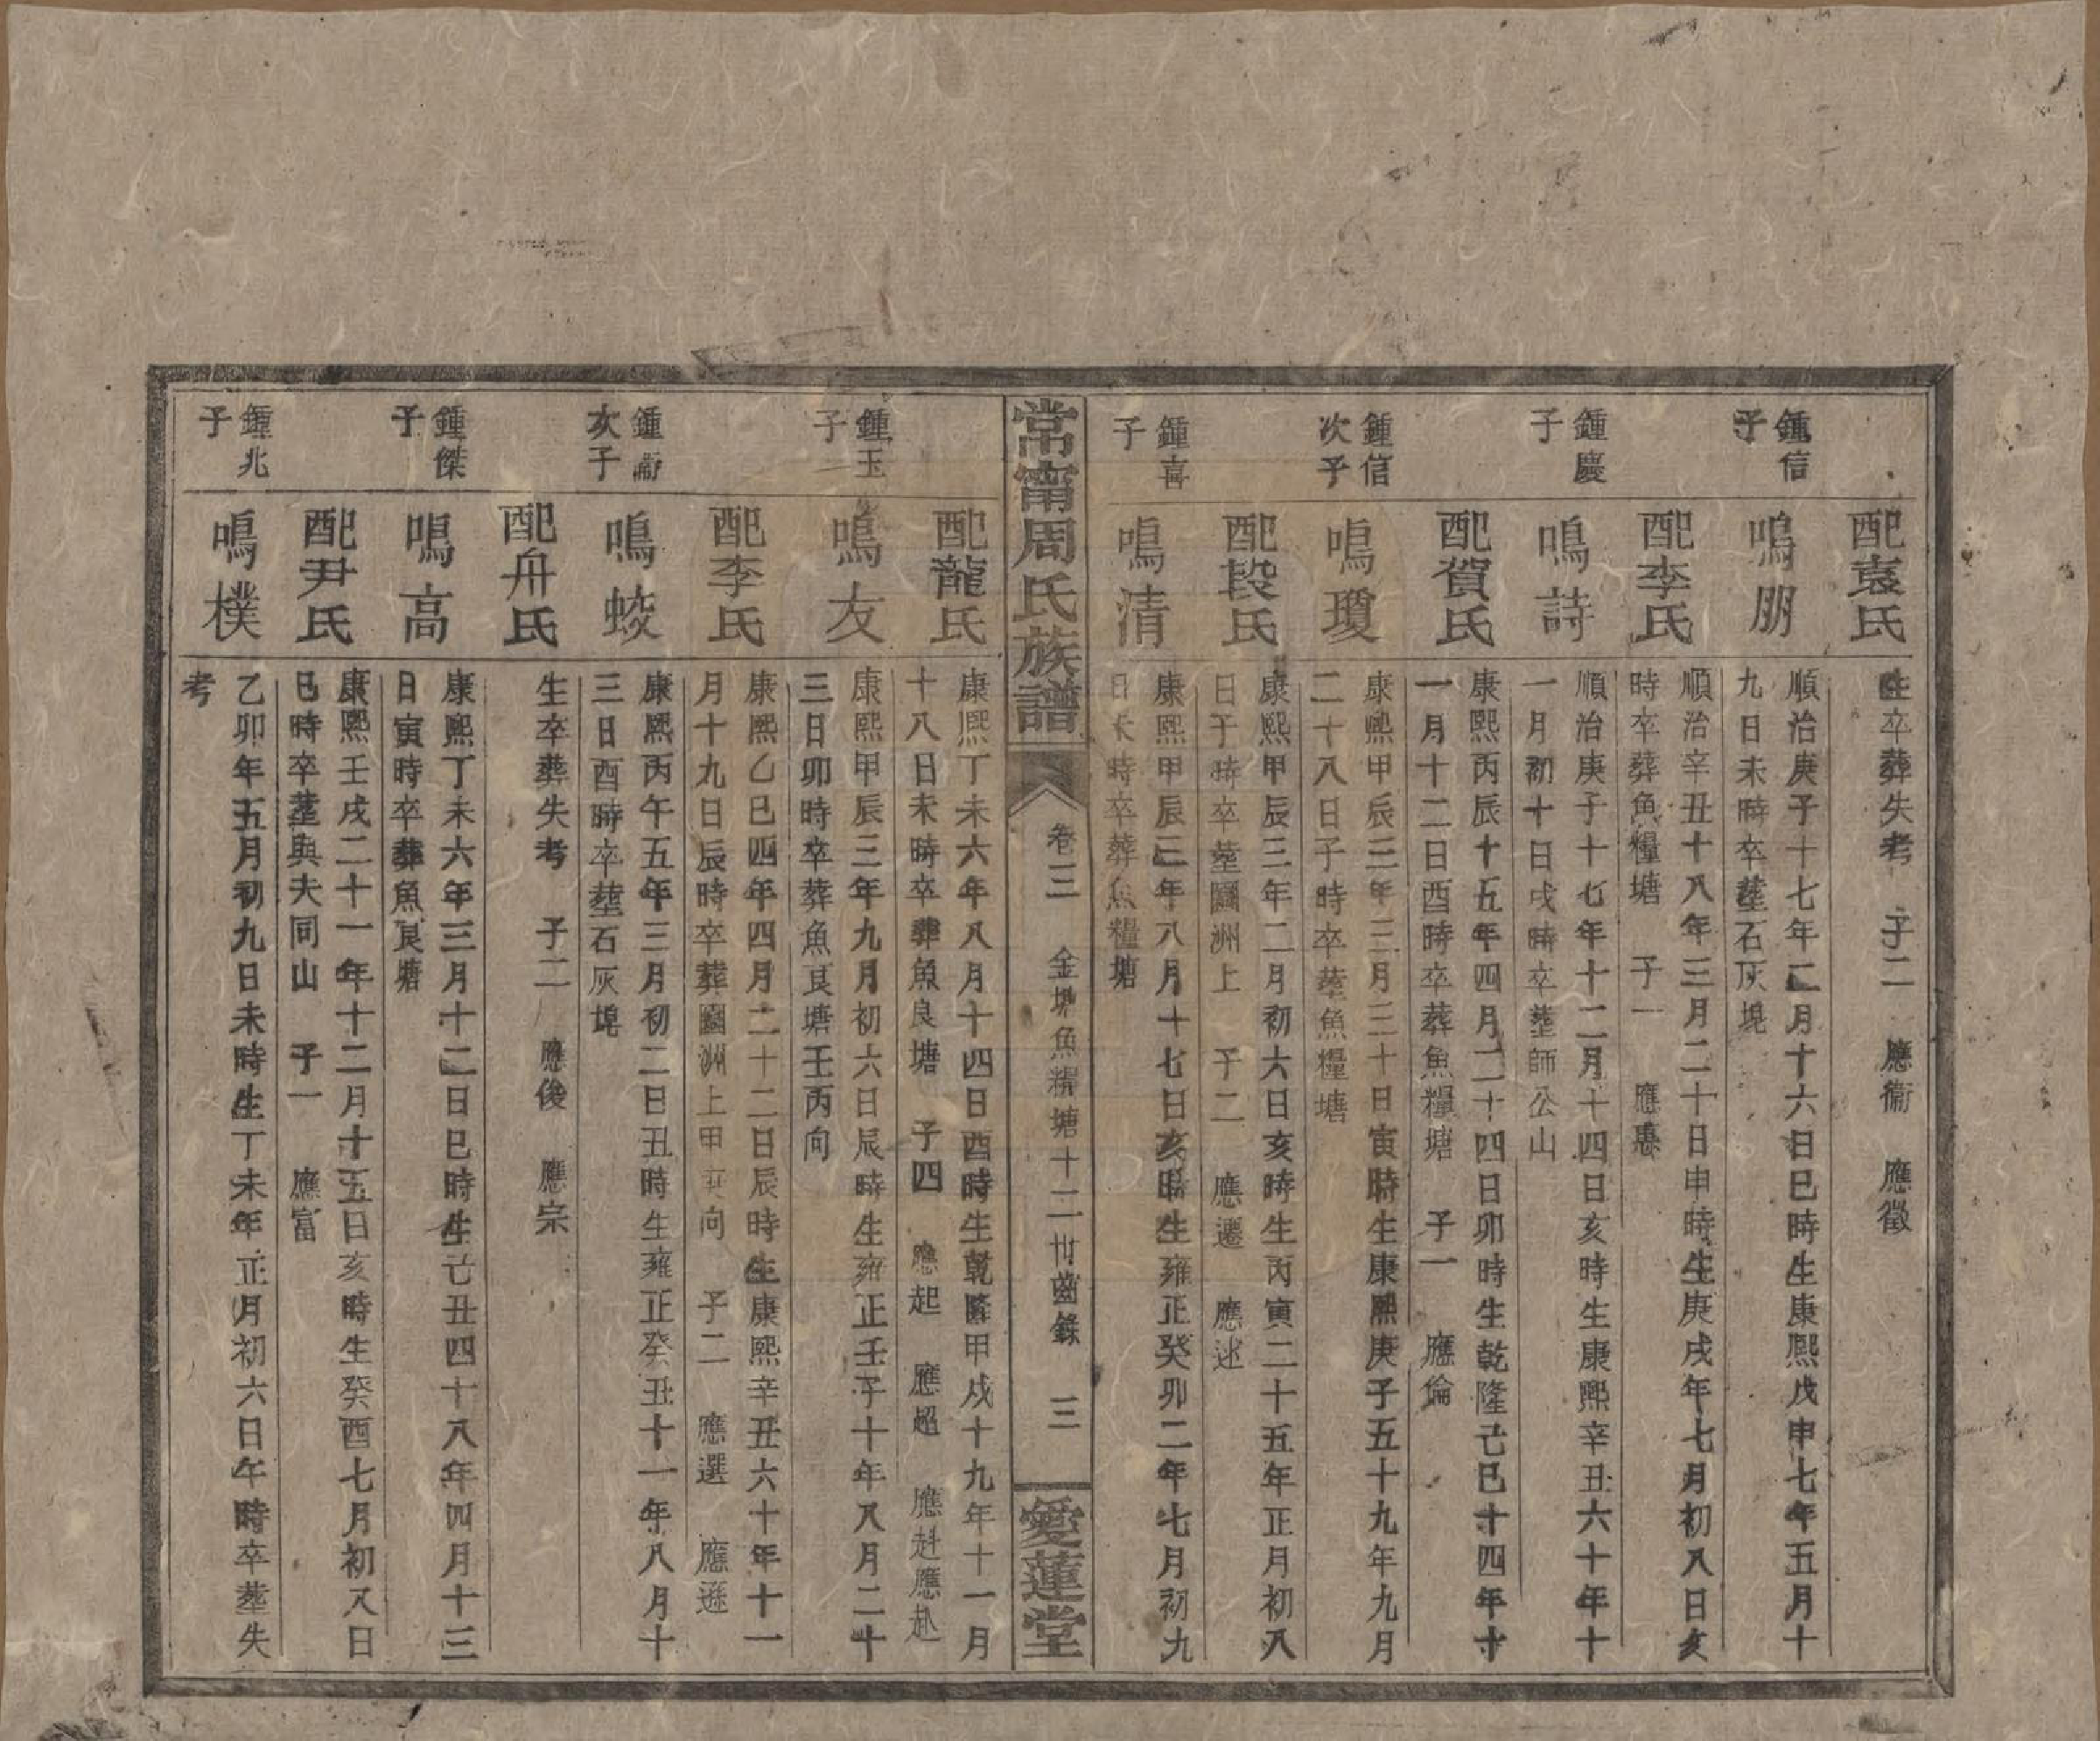 配袁氏
生卒葬失考　子二　應衞　應徵
鍾信
子
鳴朋
順治庚子十七年二月十六日巳時生康熙戊申七年五月十
九日未時卒塟石灰塊
配李氏
順治辛丑十八年三月二十日申時生庚戌年七月初八日亥
時卒葬魚糧塘　子一　應惠
鍾慶
子
鳴詩
順治庚子十七年十二月十四日亥時生康熙辛丑六十年十
一月初十日戌時卒塟師公山
配賀氏
康熙丙辰十五年四月二十四日卯時生乾隆己巳十四年十
一月十二日酉時卒葬魚糧塘　子一　應倫
鍾信
次子
鳴瓊
康熙甲辰三年三月三十日寅時生康熙庚子五十九年九月
二十八日子時卒塟魚糧塘
配段氏
康熙甲辰三年二月初六日亥時生丙寅二十五年正月初八
日子時卒塟圞洲上　子二　應遷　應述
鍾喜
子
鳴清
康熙甲辰三年八月十七日亥時生雍正癸卯二年七月初九
日未時卒葬魚糧塘
常甯周氏族譜
卷三　金塘魚糧塘十二卅齒錄　三
愛蓮堂
配龍氏
康熙丁未六年八月十四日酉時生乾隆甲戌十九年十一月
十八日未時卒葬魚良塘　子四　應起　應超　應赶應赴
鍾玉
子
鳴友
康熙甲辰三年九月初六日辰時生雍正壬子十年八月二十
三日卯時卒葬魚良塘壬丙向
配李氏
康熙乙巳四年四月二十二日辰時生康熙辛丑六十年十一
月十九日辰時卒葬圞洲上甲庚向　子二　應選　應遜
鍾
次子
鳴蛟
康熙丙午五年三月初二日丑時生雍正癸丑十一年八月十
三日酉時卒塟石灰塊
配舟氏
生卒葬失考　子二　應俊　應宗
鍾傑
子
鳴高
康熙丁未六年三月十二日巳時生己丑四十八年四月十三
日寅時卒葬魚良塘
配尹氏
康熙壬戌二十一年十二月十五日亥時生癸酉七月初又日
巳時卒塟與夫同山　子一　應富
鍾兆
子
鳴樸
乙卯年五月初九日未時生丁未年正月初六日午時卒塟失
考